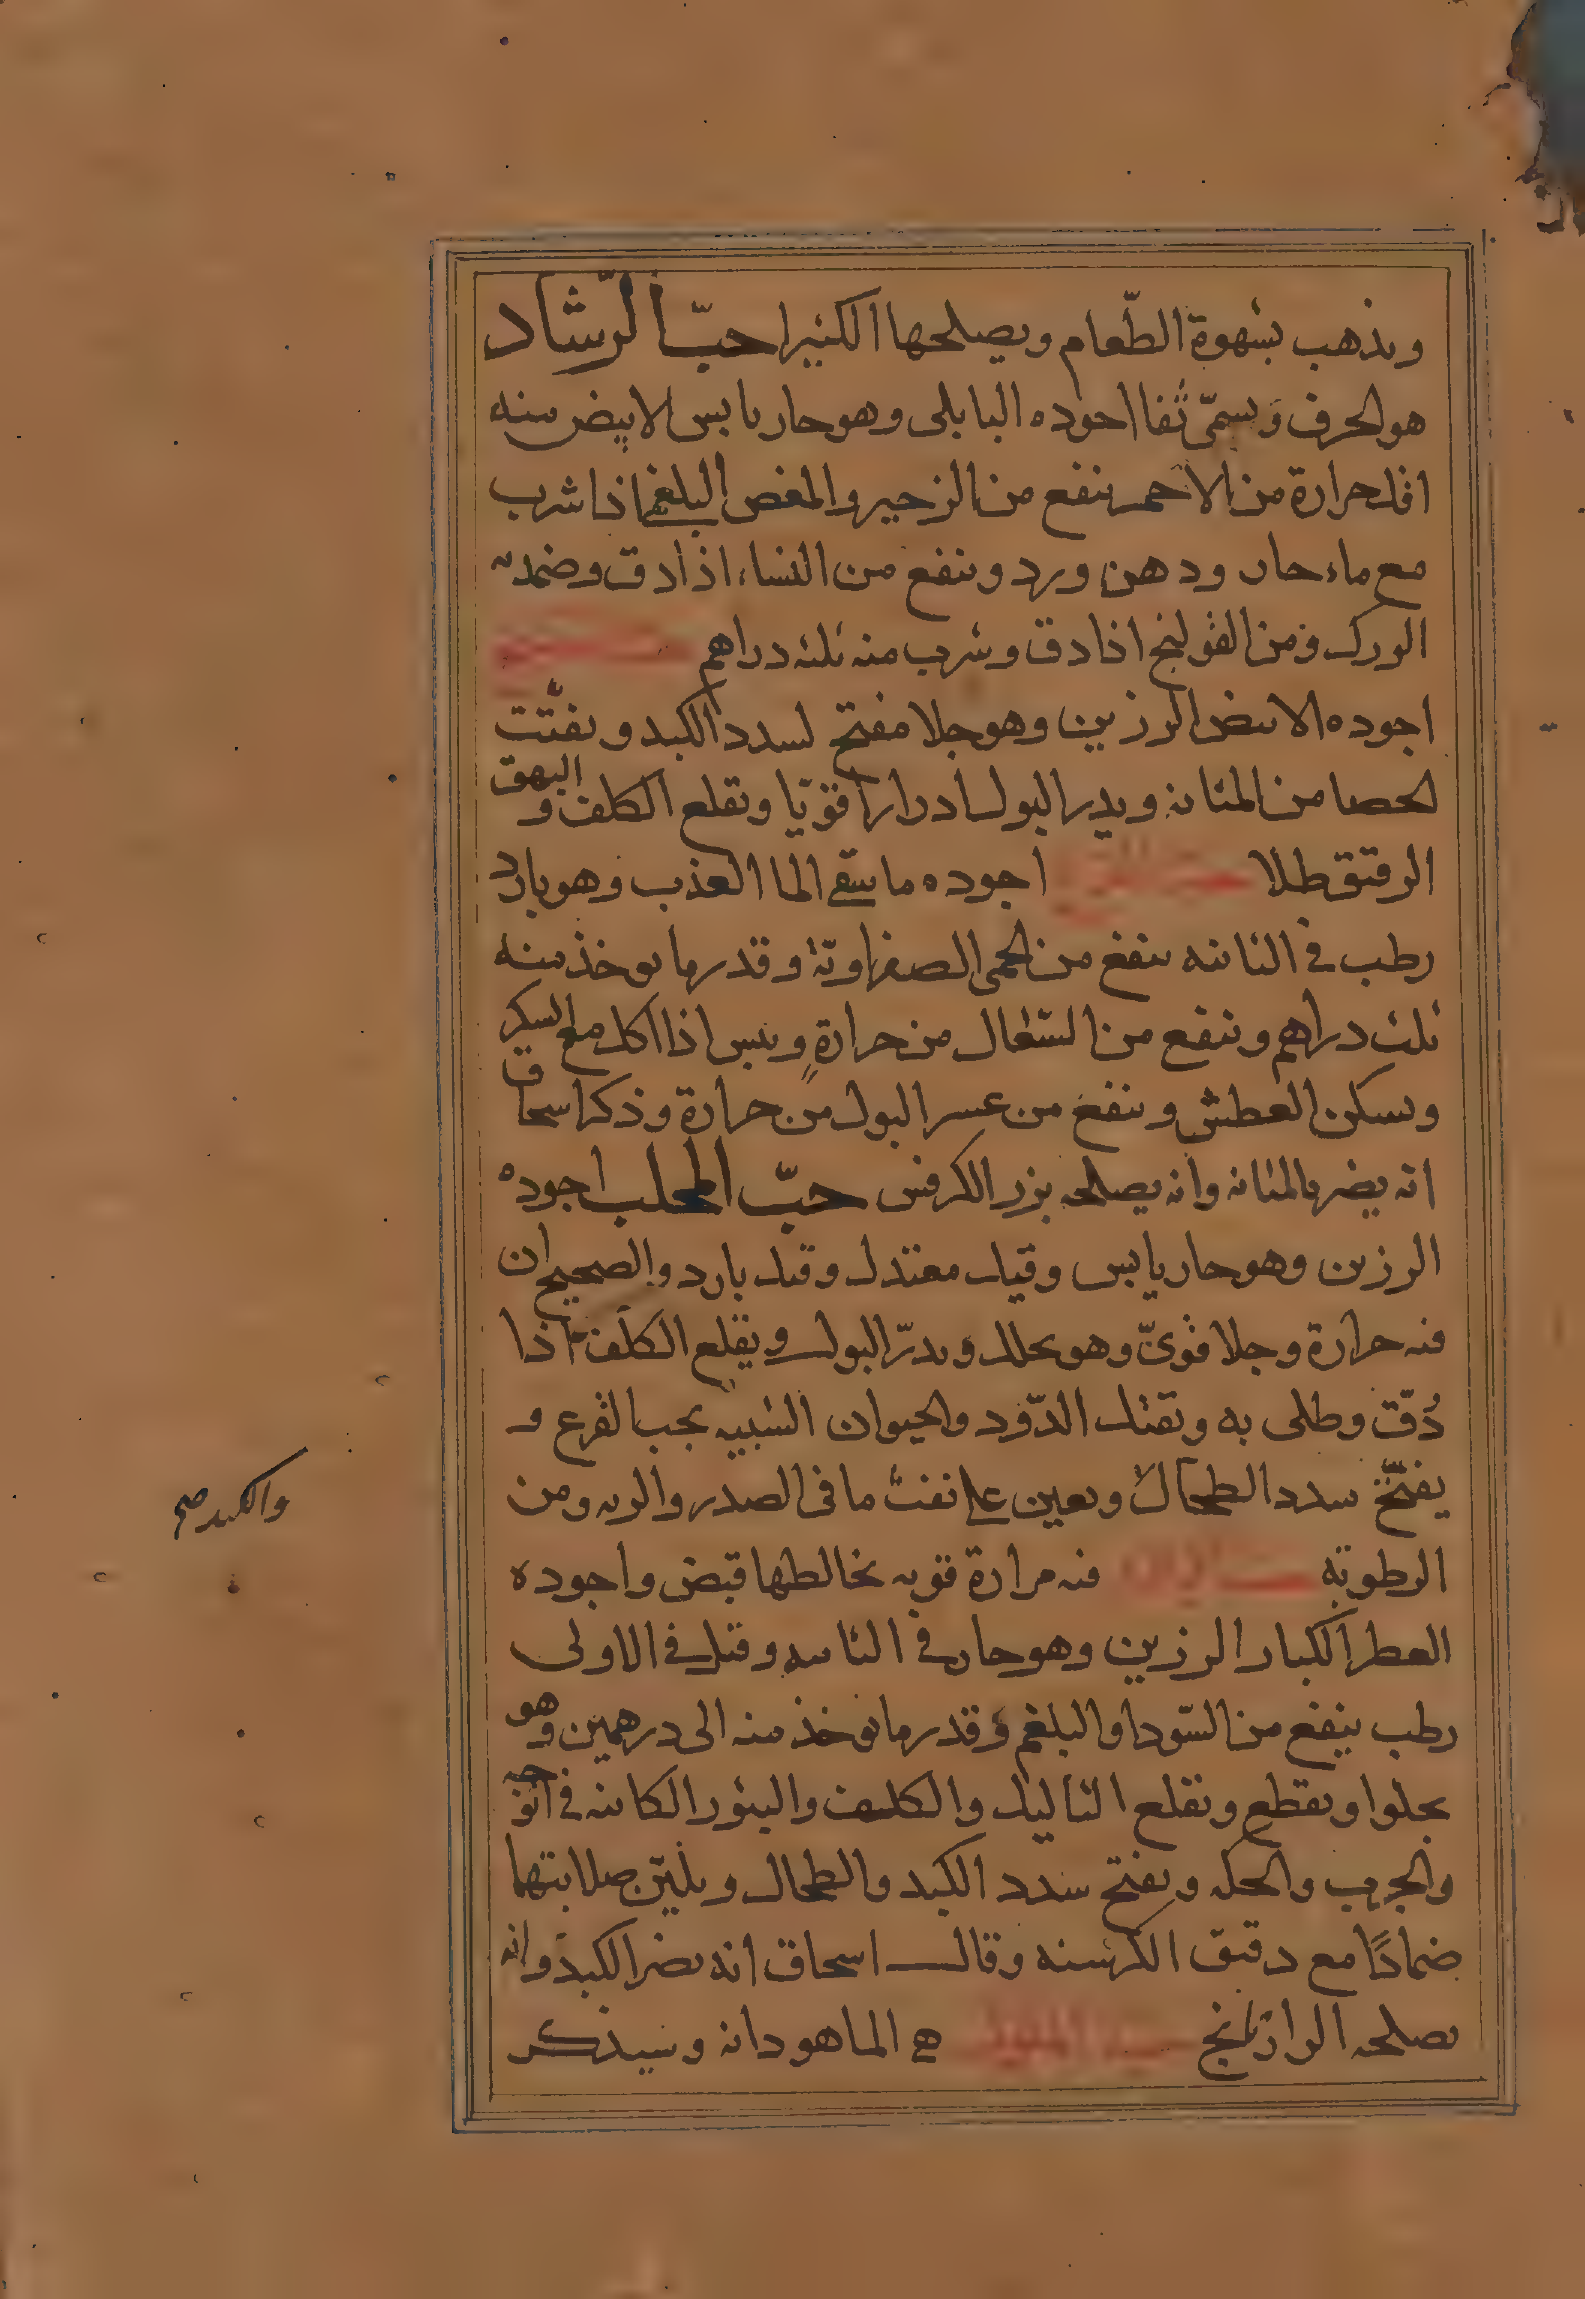 ويذهب بشهوة الطّعام ويصلحها الكثيرا حبّ الرّشاد
هو الحرف ويسمّى ثفا اجوده البابلى وهو حار يابس الابيض منه
اقل حرارة من الاحمر ينفع من الزحير والمغص البلغمى اذا شرب
مع ماء حار ودهن ورد وينفع من النساء اذا دق وضمد به
الورك ومن القولنج اذا دق وشرب منه ثلثه دراهم
اجوده الابيض الرزين وهو جلا مفتح لسدد الكبد ويفتّت
الحصا من المثانه ويدر البول ادرارا قويّا ويقلع الكلف والبهق
الرقيق طلا اجوده ما سقى الما العذب وهو بارد
رطب فى الثانيه ينفع من الحمى الصفراويّة وقدر ما يوخذ منه
ثلث دراهم وينفع من السّعال من حرارةٍ ويبس اذا اكل مع السكر
ويسكن العطش وينفع من عسر البول من حرارة وذكر اسحاق
انه يضر بالمثانه وانه يصلحه بزر الكرفس حبّ المحلب اجوده
الرزين وهو حار يابس وقيل معتدل وقيل بارد والصحيح ان
فيه حرارة وجلا قوىّ وهو محلل ويدرّ البول ويقلع الكلف اذا
دُقّ وطلى به ويقتل الدّود والحيوان الشبيه بحب القرع و
يفتّح سدد الطحال ويعين على نفث ما فى الصدر والريه ومن
والكبد صح
الرطوبه فيه مرارة قويه يخالطها قبض واجوده
العطر الكبار الرزين وهو حار فى الثانيه وقيل فى الاولى
رطب ينفع من السّودا والبلغم وقدر ما يوخذ منه الى درهمين وهو
يجلوا ويقطع ويقلع الثاليل والكلف والبثور الكائنه فى الوجه
والجرب والحكه ويفتح سدد الكبد والطحال ويليّن صلابتها
ضمادًا مع دقيق الكرسنه وقال اسحاق انه يضر الكبد وانه
يصلحه الرازيانج هى الماهودانه وسيذكر